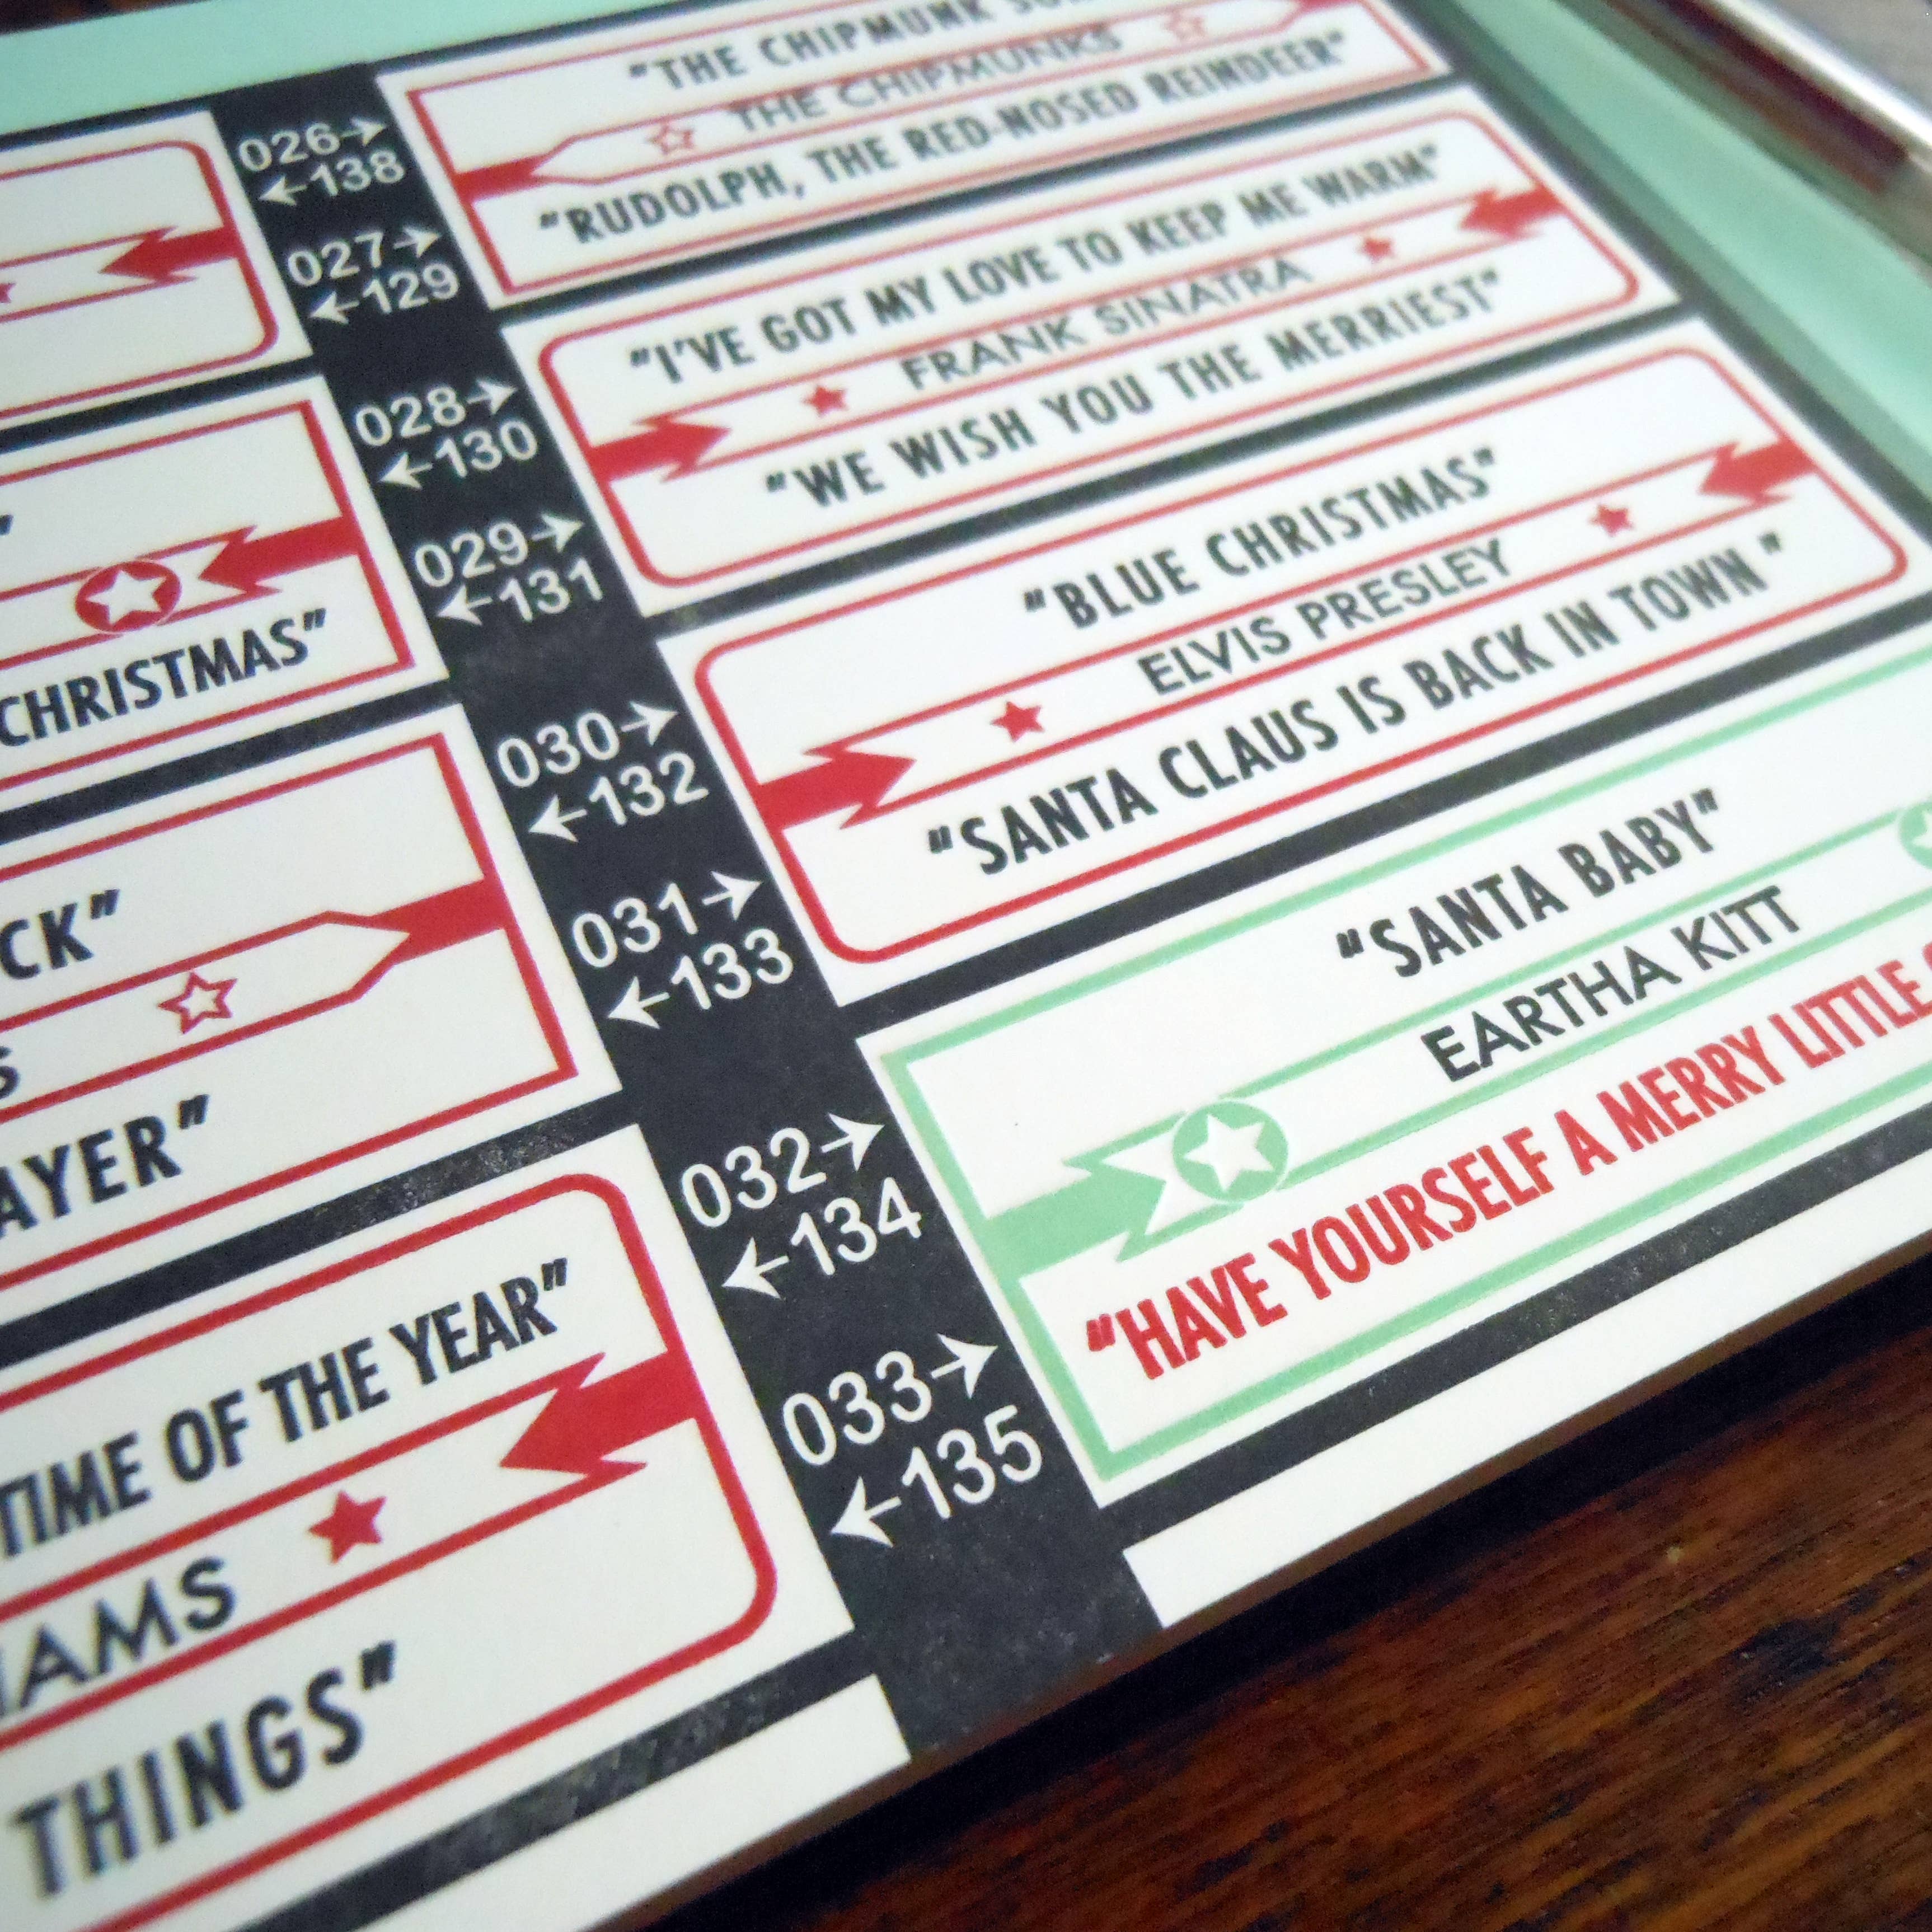 "THE CHIPMUNK
THE CHIPMUNKS
"RUDOLPH, THE RED-NOSED REINDEER"
026→
←138
027→
←129
"I'VE GOT MY LOVE TO KEEP ME WARM"
FRANK SINATRA
"WE WISH YOU THE MERRIEST"
028→
←130
029→
←131
CHRISTMAS"
"BLUE CHRISTMAS"
ELVIS PRESLEY
"SANTA CLAUS IS BACK IN TOWN "
030→
←132
031→
←133
CK"
S
AYER"
"SANTA BABY"
EARTHA KITT
"HAVE YOURSELF A MERRY LITTLE
032→
←134
033→
←135
TIME OF THE YEAR"
IAMS
THINGS"